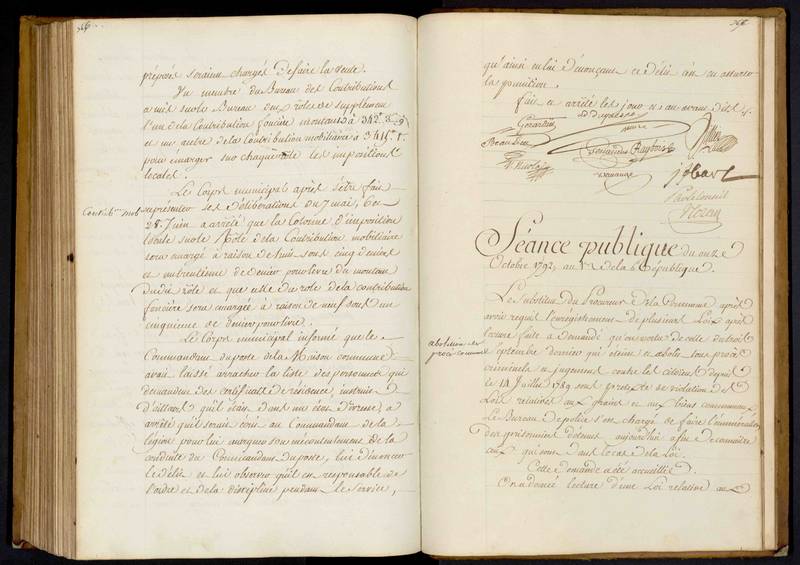 préposés seraient chargés de faire la vente.
Un membre du Bureau des Contributions
a mis sur le Bureau deux rôles de supplément
l'un de la Contribution foncière montant à
et un autre de la Contribution mobiliaire à
pour émarger sur chaque rôle les impositions
locales.
Le Corps municipal après s'être fait
Contr.on mob.
représenter ses délibérations du 7 mai, 6 et
28 Juin a arrêté que la Colonne d'imposition
locale sur le Rôle de la Contribution mobiliaire
sera émargé à raison de huit sous cinq deniers
et un trentième de denier pour livre du montant
dudit rôle et que celle du rôle de la contribution
foncière sera émargée à raison de neuf sous un
cinquième de denier pour livre.
Le Corps municipal informé que le
Commandant du poste de la Maison commune
avait laissé arracher la liste des personnes qui
demandent des certificats de résidence, instruit
d'ailleurs qu'il était dans un état d'ivresse, a
arrêté qu'il serait écrit au Commandant de la
légion pour lui marquer son mécontentement de la
conduite du Commandant du poste, lui dénoncer
le délit et lui observer qu'il est responsable de
l'ordre et de la discipline pendant le service,
qu'ainsi en lui dénonçant ce délit c'est en assurer
la punition.
fait et arrêté les jour et an avant dits.
Gérardin
Beaulieu
Nicolas
jobart
Rozan
Séance publique du onze
Octobre 1792, au 1.er de la République.
Le Substitut du Procureur de la Commune après
avoir requis l'enregistrement de plusieurs Loix après
lecture faite a demandé qu'en vertu de celle du trois
abolition des
procès criminels
Septembre dernier qui éteint et abolit tous procès
criminels et jugemens contre les citoiens depuis
le 14 Juillet 1789 sous prétexte de violation des
Loix relatives aux grains et aux biens communaux
Le Bureau de police soit chargé de faire l'énumération
des prisonniers détenus aujourd'hui afin de connaitre
ceux qui sont dans le cas de la Loi.
Cette demande a été accueillie.
On a donné lecture d'une Loi relative aux